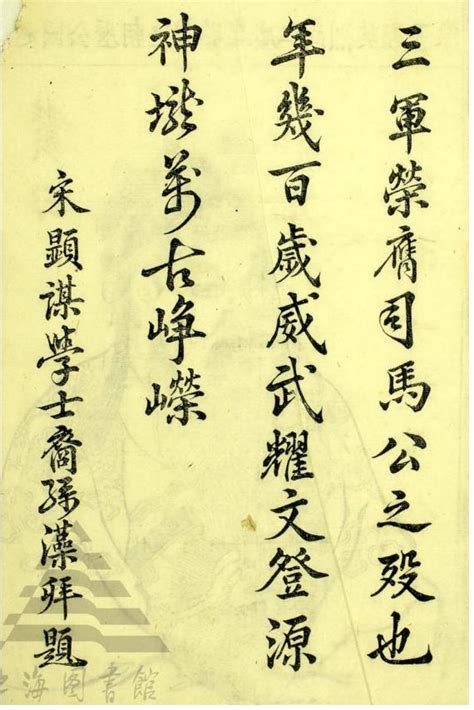 三軍榮膺司馬公之歿也
年幾百歲威武耀文登源
神壠萬古峥嶸
宋顯謀學士裔孫藻拜題
上海图書館